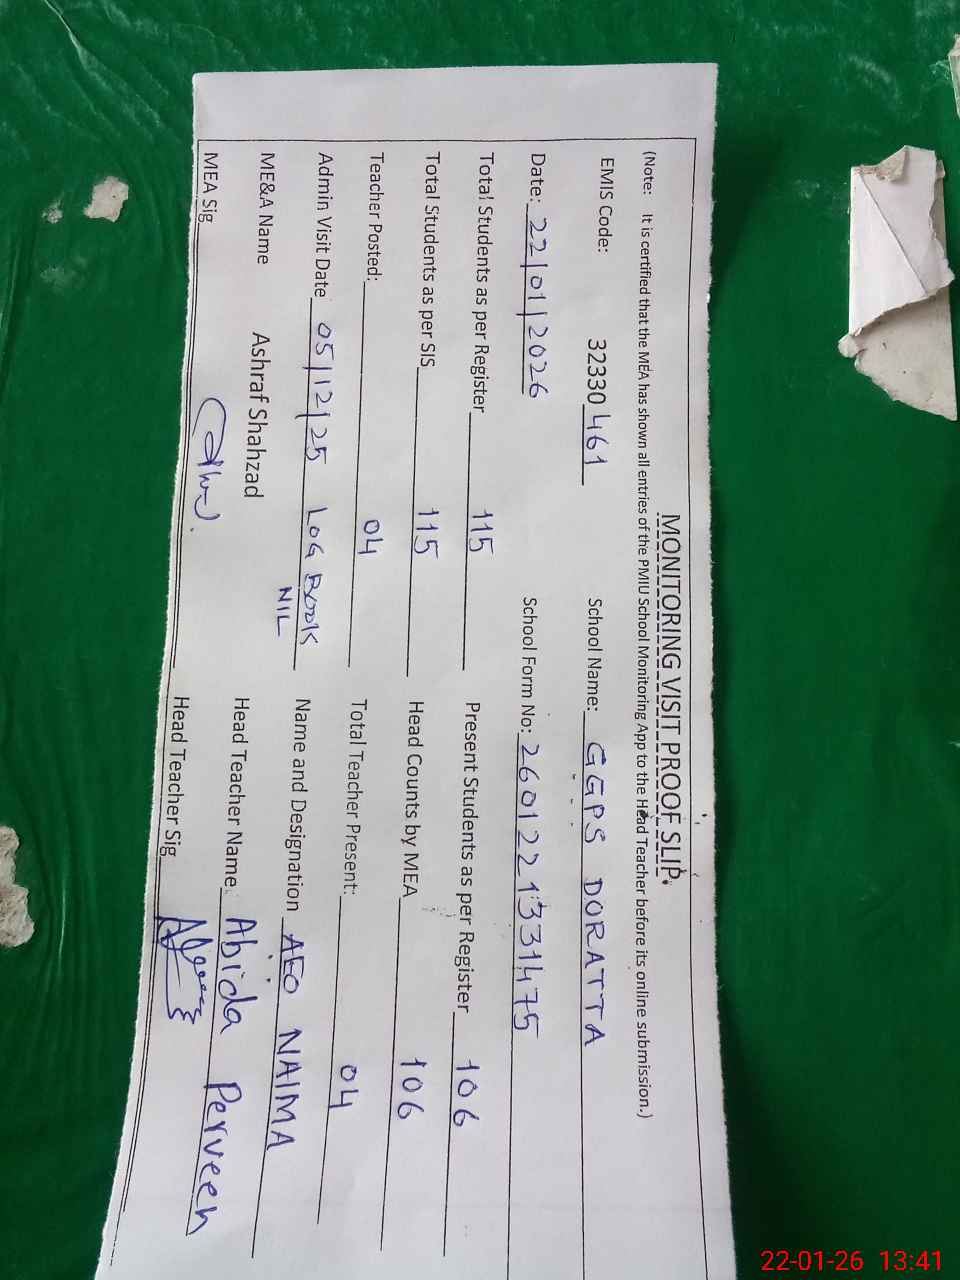 MONITORING VISIT PROOF SLIP
(Note: It is certified that the MEA has shown all entries of the PMIU School Monitoring App to the Head Teacher before its online submission.)
EMIS Code: 32330461 School Name: GGPS DORATTA
Date: 22/01/2026 School Form No: 2601221331475
Total Students as per Register 115 Present Students as per Register 106
Total Students as per SIS 115 Head Counts by MEA 106
Teacher Posted: 04 Total Teacher Present: 04
Admin Visit Date 05/12/25 LOG BOOK NIL Name and Designation AEO NAIMA
ME&A Name Ashraf Shahzad Head Teacher Name Abida Perveen
MEA Sig Head Teacher Sig
22-01-26 13:41